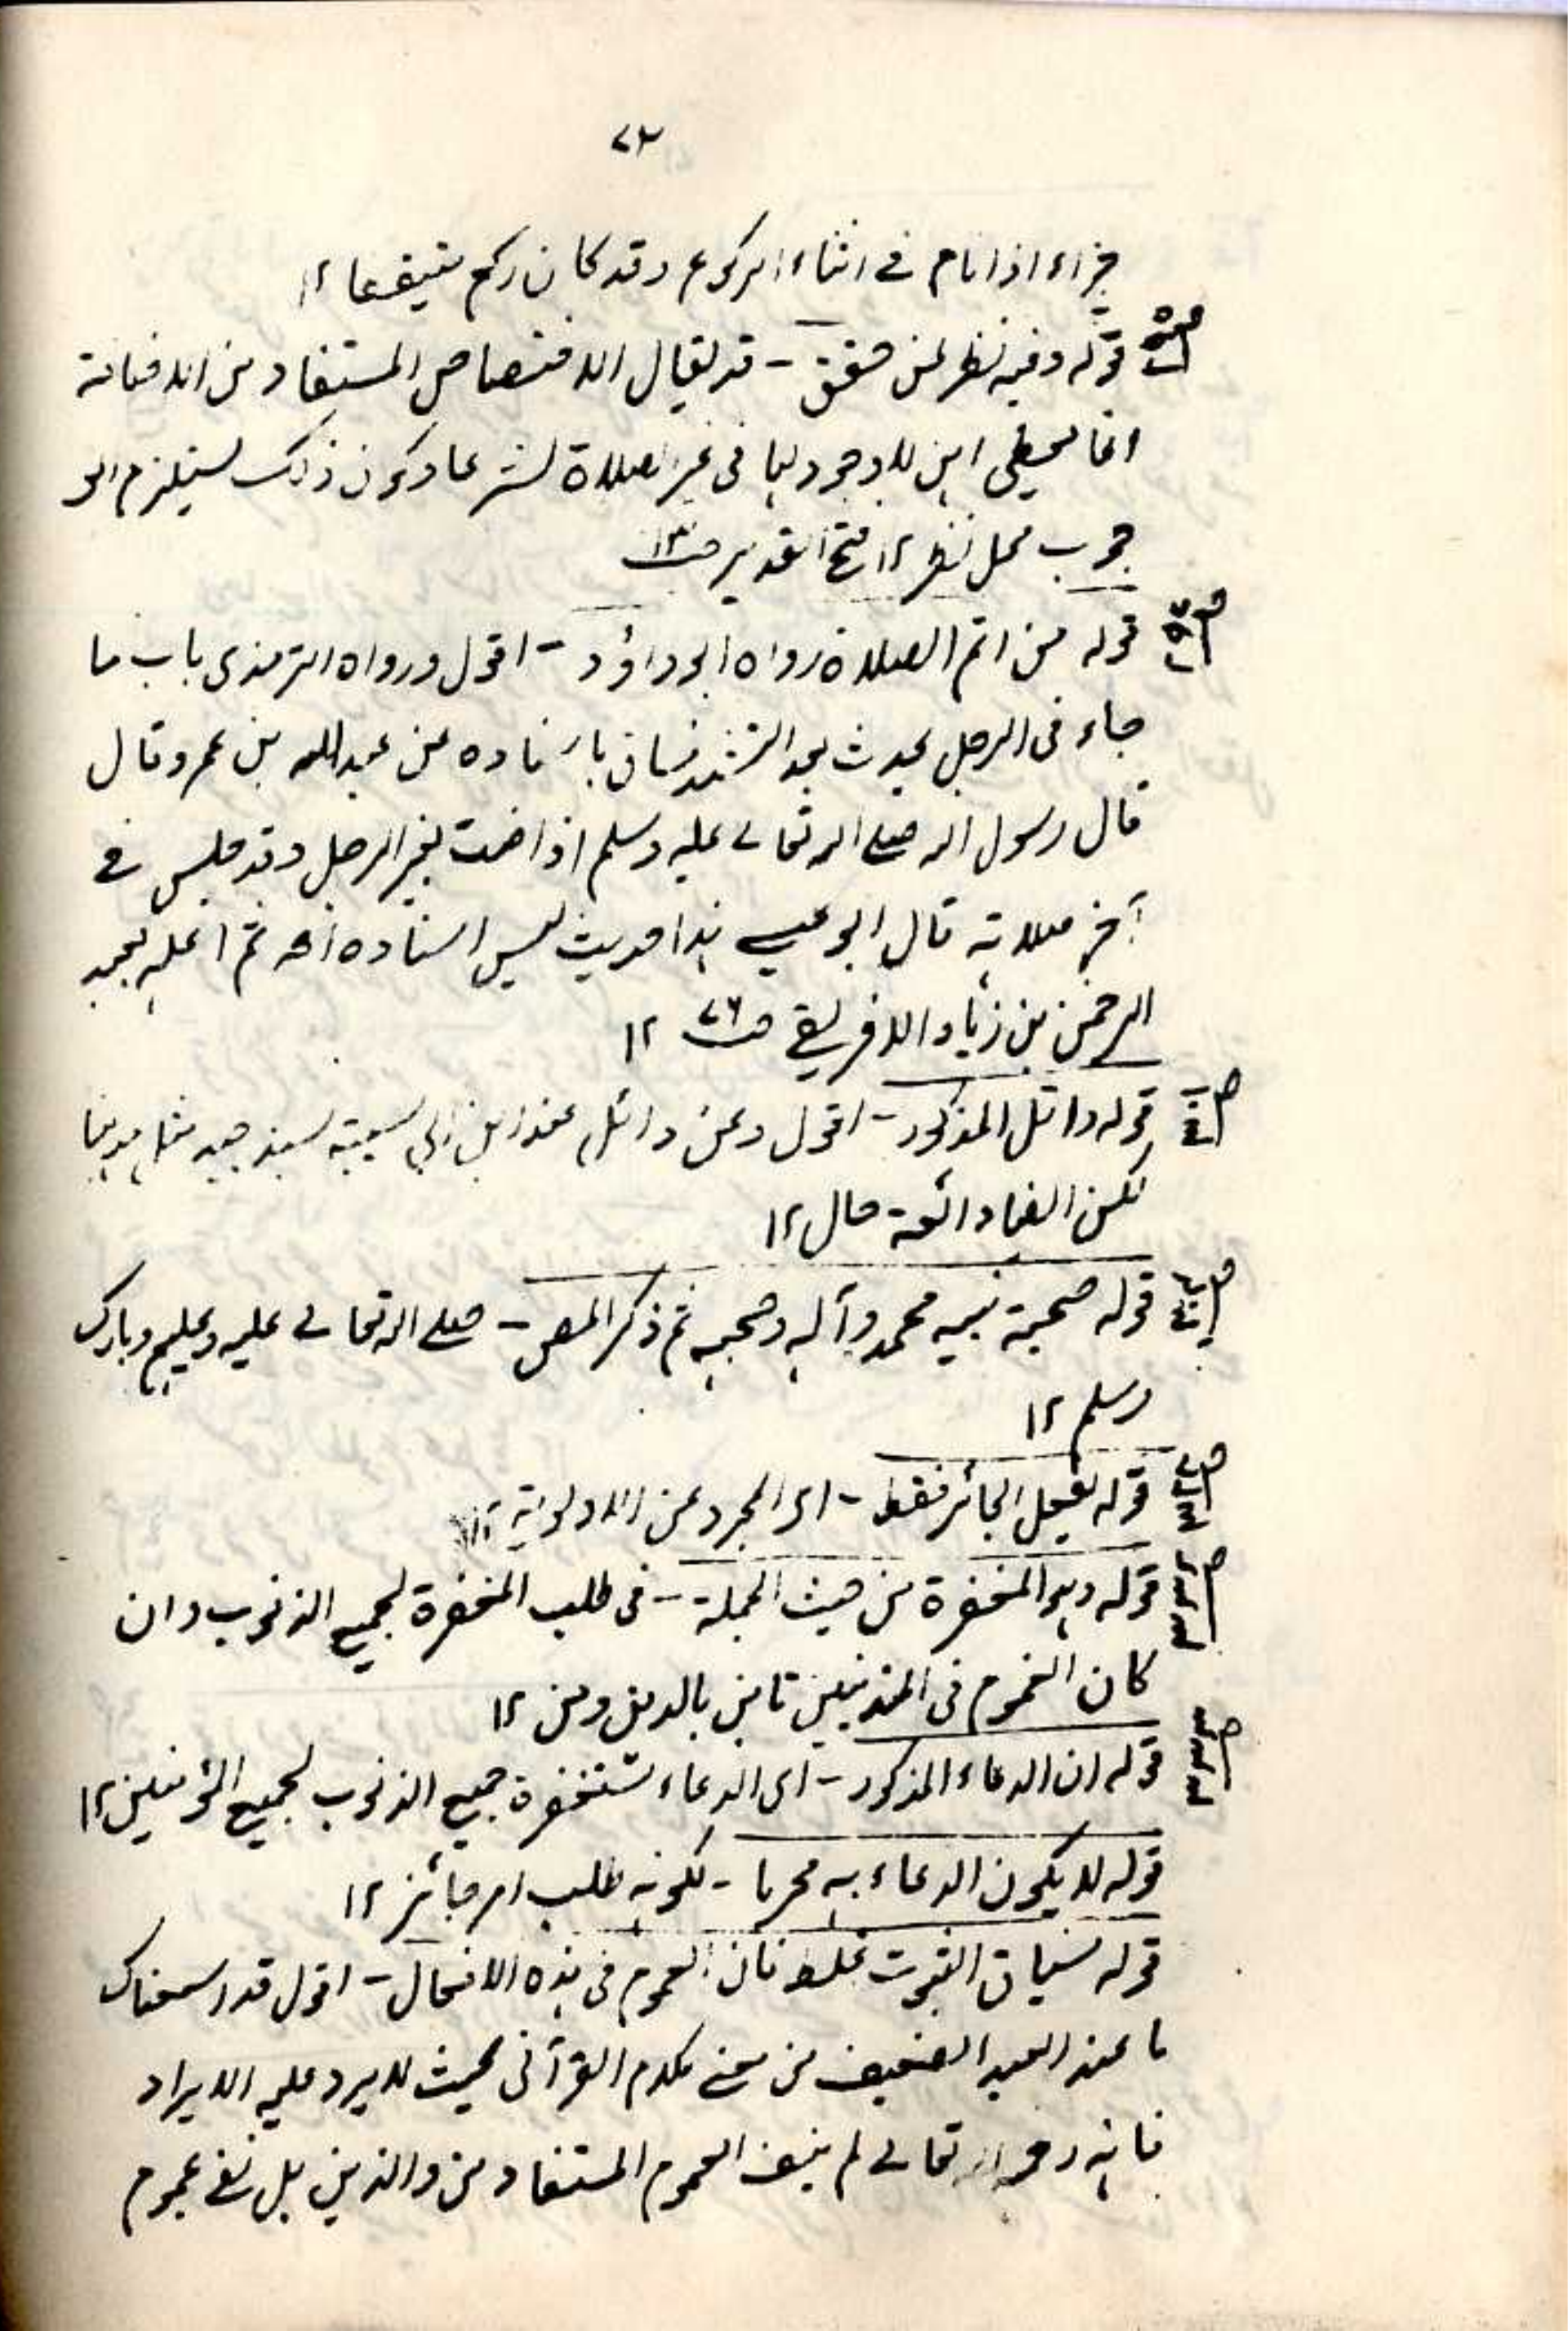 ٧٣
جزاء اذا نام فى اثناء الركوع وقد كان ركع متيقظا ١٢
قوله وفيه نظر لمن حقق - قد يقال الاختصاص المستفاد من الاضافة
انما يعطى ان لا وجود لها فى غير الصلاة شرعا وكون ذلك يستلزم الو
جوب محل نظر ١٢ فتح القدير
قوله من اتم الصلاة رواه ابو داؤد - اقول ورواه الترمذى باب ما
جاء فى الرجل يحدث بعد التشهد فساق باسناده عن عبدالله بن عمرو قال
قال رسول الله صلى الله تعالى عليه وسلم اذا احدث يعنى الرجل وقد جلس فى
آخر صلاته قال ابو عيسى هذا حديث ليس اسناده اھ ثم اعله بعبد
الرحمن بن زياد الافريقى ص٧٦ ١٢
قوله وائل المذكور - اقول وعن وائل عند ابن ابى شيبة بسند جيد
لكن الضاد ائمة حال ١٢
قوله صحبة نبيه محمد وآله وصحبه ثم ذكر المص - صلى الله تعالى عليه وعليهم وبارك
وسلم ١٢
قوله بفعل الجائز فقط - اى المجرد عن الاولوية ١٢
قوله وهو المغفرة من حيث الجملة - فى طلب المغفرة لجميع الذنوب وان
كان العموم فى المذنبين تاين بالدين ومن ١٢
قوله ان الدعاء المذكور - اى الدعاء بمغفرة جميع الذنوب لجميع المؤمنين ١٢
قوله لا يكون الدعاء به محرما - لكونه طلب امر جائز ١٢
قوله سياق الثبوت غلط فان العموم فى هذه الافعال - اقول قد اسمعناك
ما عند العبد الضعيف من معنى كلام القرآنى بحيث لا يرد عليه الايراد
فانه رحمه الله تعالى لم ينف العموم المستفاد من والذين بل نفى عموم